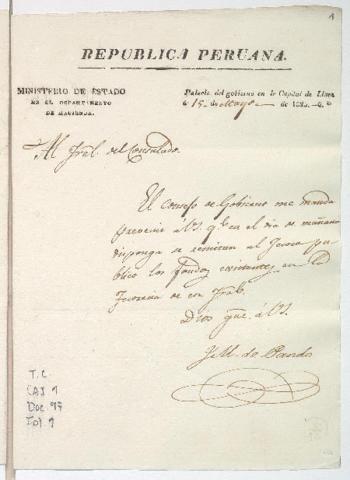 1
REPUBLICA PERUANA.
MINISTERIO DE ESTADO
EN EL DEPARTAMENTO
DE HACIENDA.
Palacio del gobierno en la Capital de Lima
á 15 de Mayo de
Al Tral. del Consulado.
El Consejo de Gobierno me manda
prevenir á VS. qe. en el dia de mañana
disponga se remitan al Tesoro pu-
blico los fondos existentes en la
Tesoreria de ese Tral.
Dios gue. á VS.
J. M. de Pando
T.C.
CAJ 1
Doc 97
Fol 1